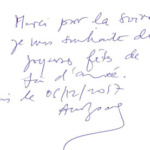 Merci pour la soirée
je vous souhaite de
joyeuses fêtes de
fin d'année.
le 06/12/2017